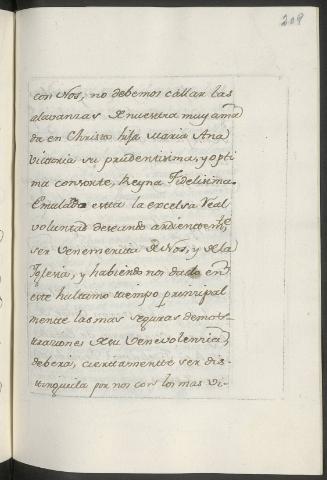 209
con Nos, no debemos callar las
alavanzas de nuestra muy ama
da en Christo hija Maria Ana
victoria su prudentisima, y opti
ma consorte, Reyna Fidelisima.
esta la excelsa Real
voluntad deseando ardientem.te
ser venemerita de Nos, y de la
Yglesia, y habiendo nos dado en
este hultimo tiempo principal
mente las mas seguras demos-
traziones de su venevolencia,
deberá, ciertamente ser dis-
tinguida por nos con los mas vi-